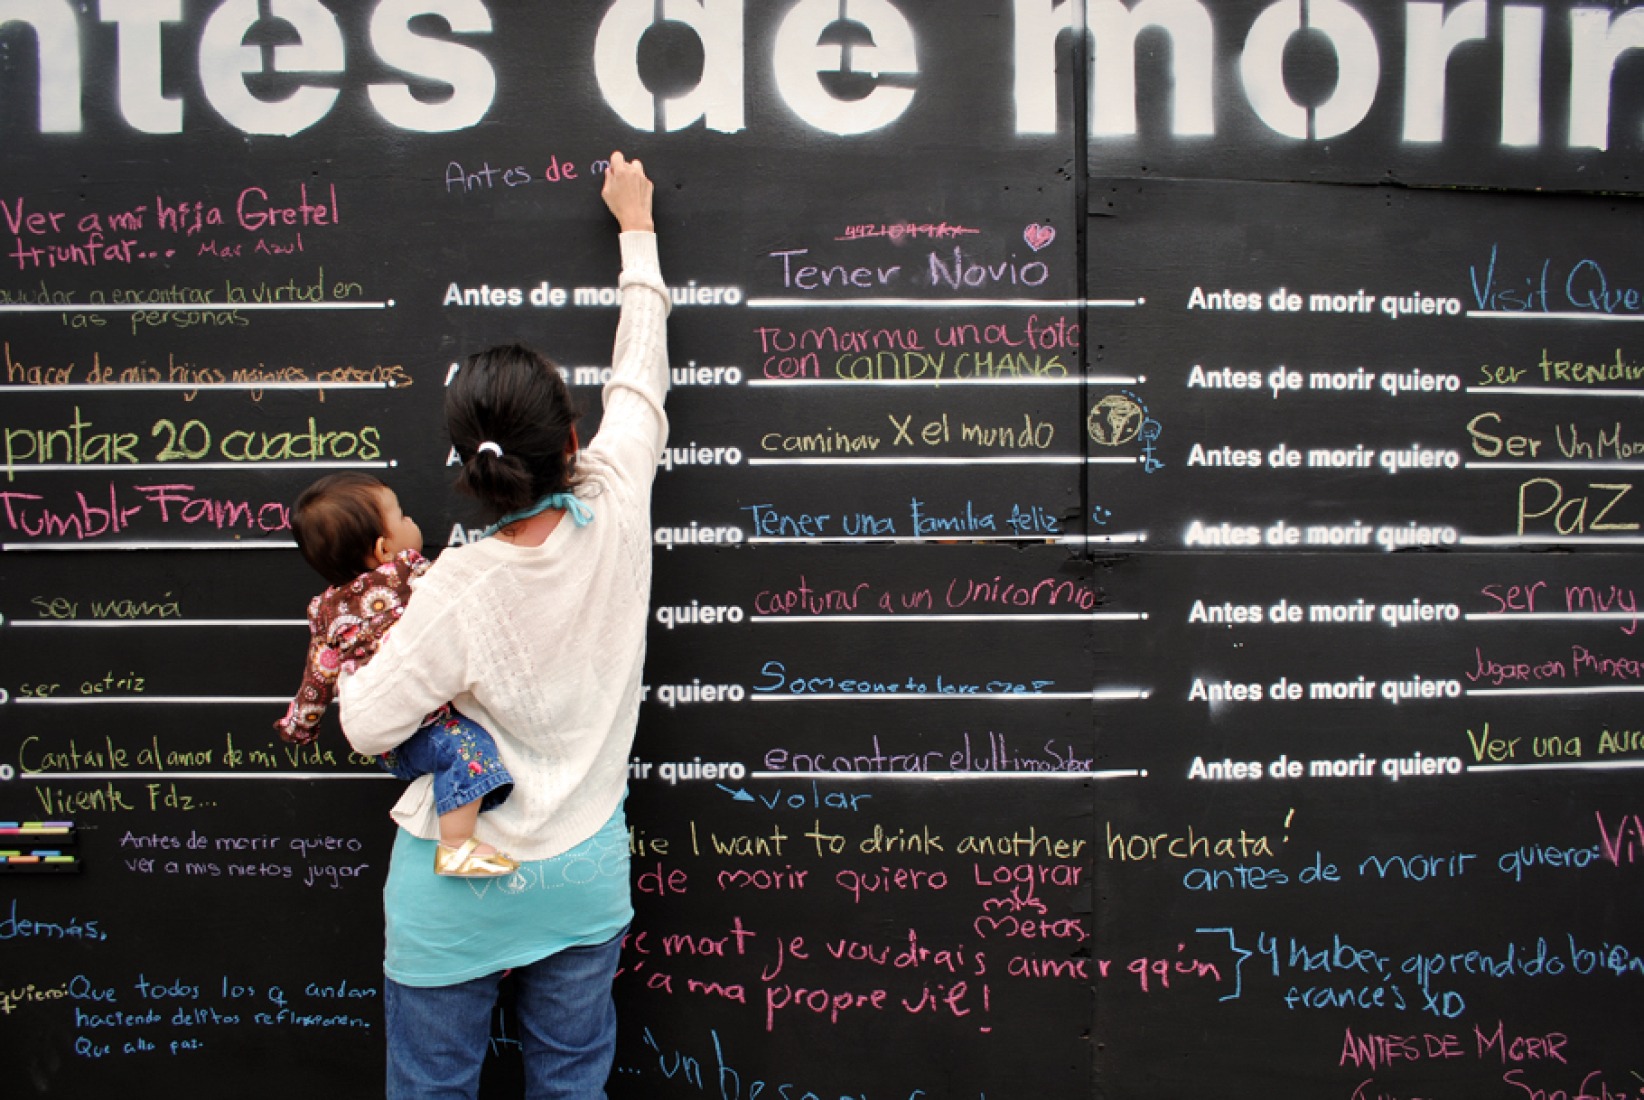 ntes de morir
Antes de m
Ver a mi hija Gretel
triunfar... Mar Azul
ayudar a encontrar la virtud en
las personas
hacer de mis hijos mejores personas
pintar 20 cuadros
Tumblr Famo
ser mamá
ser actriz
Cantarle al amor de mi vida
Vicente Fdz...
Antes de morir quiero
ver a mis nietos jugar
demás.
quiero: Que todos los q andan
haciendo delitos reflexionen.
Que alla paz.
Antes de mo uiero Tener Novio
A mo uiero Tomarme una foto
con CANDY CHANG
A quiero caminar X el mundo
An quiero Tener una Familia feliz :)
quiero capturar a un Unicornio
r quiero Someone to love me
rir quiero encontrar el ultimo
volar
die I want to drink another horchata!
de morir quiero Lograr
mis
Metas.
re mort je voudrais aimer qqun
a ma propre vie!
} y haber aprendido bien
francés XD
... "un
Antes de morir quiero Visit Que
Antes de morir quiero ser TRENDIN
Antes de morir quiero Ser Un Mo
Antes de morir quiero PaZ
Antes de morir quiero ser muy
Antes de morir quiero Jugar con Phinea
Antes de morir quiero Ver una AURO
antes de morir quiero: Vi
ANTES DE MORIR